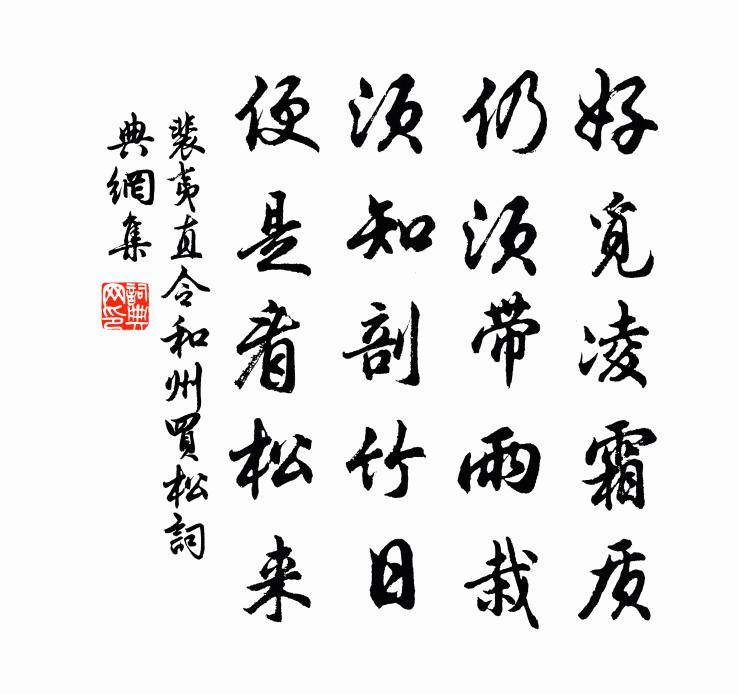 好觅凌霜质
仍须带雨栽
须知剖竹日
便是看松来
裴夷直令和州買松詞
典網集
詞典
网印